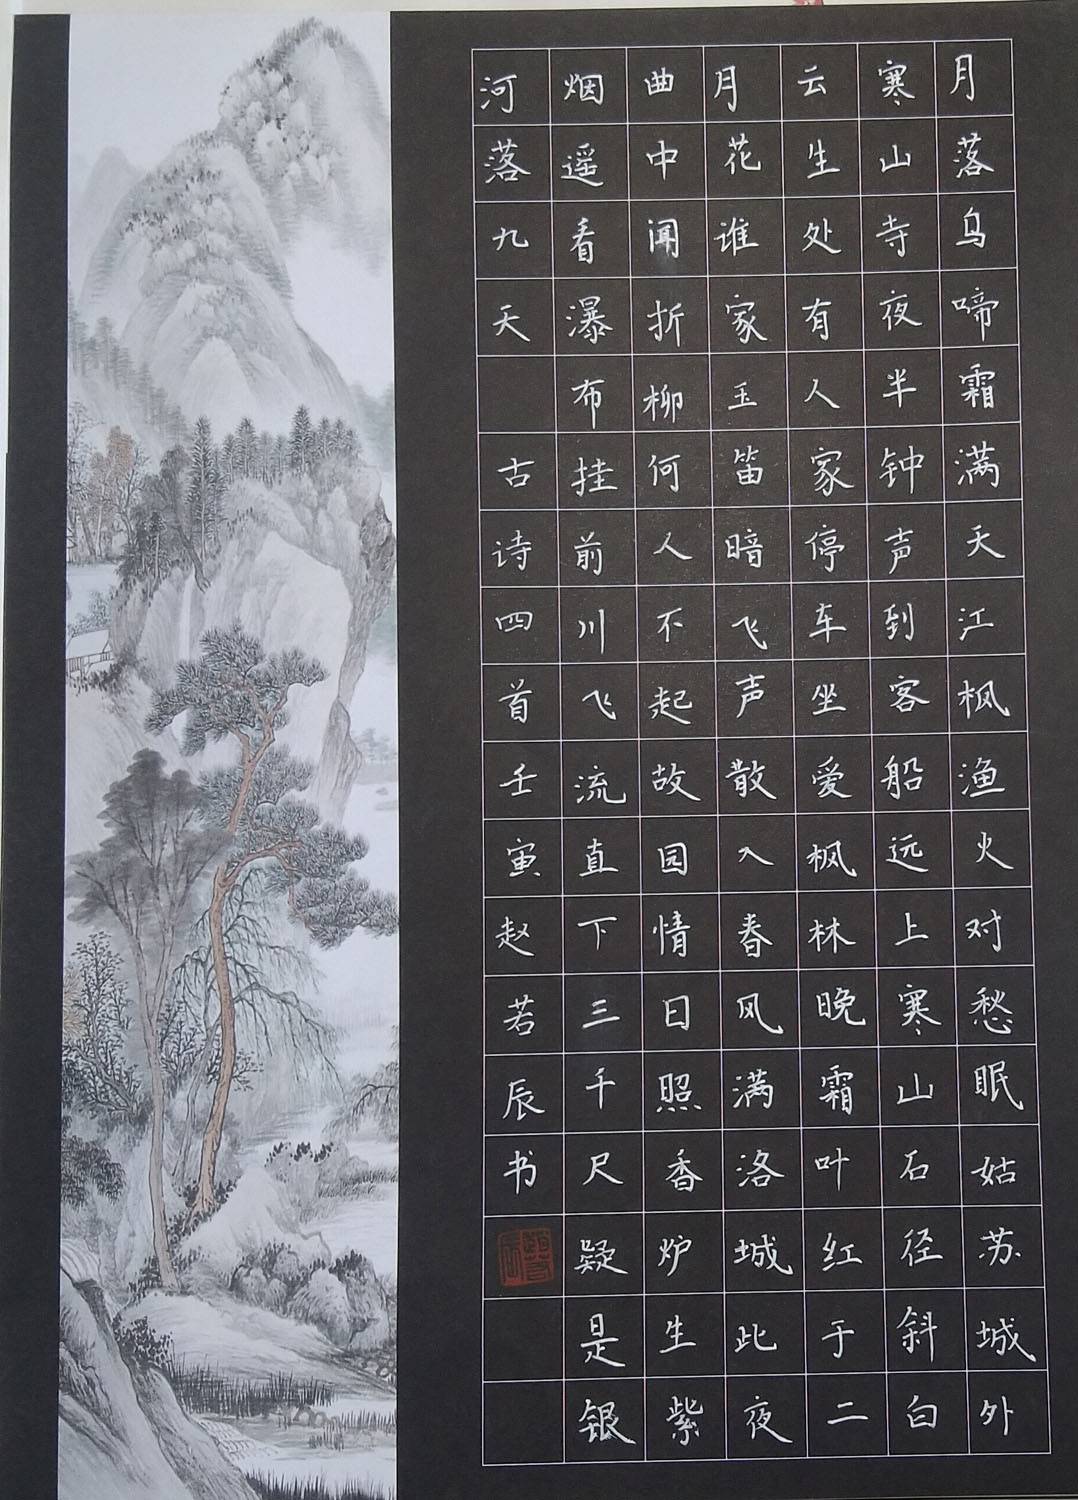 月落乌啼霜满天江枫渔火对愁眠姑苏城外
寒山寺夜半钟声到客船远上寒山石径斜白
云生处有人家停车坐爱枫林晚霜叶红于二
月花谁家玉笛暗飞声散入春风满洛城此夜
曲中闻折柳何人不起故园情日照香炉生紫
烟遥看瀑布挂前川飞流直下三千尺疑是银
河落九天 古诗四首壬寅赵若辰书